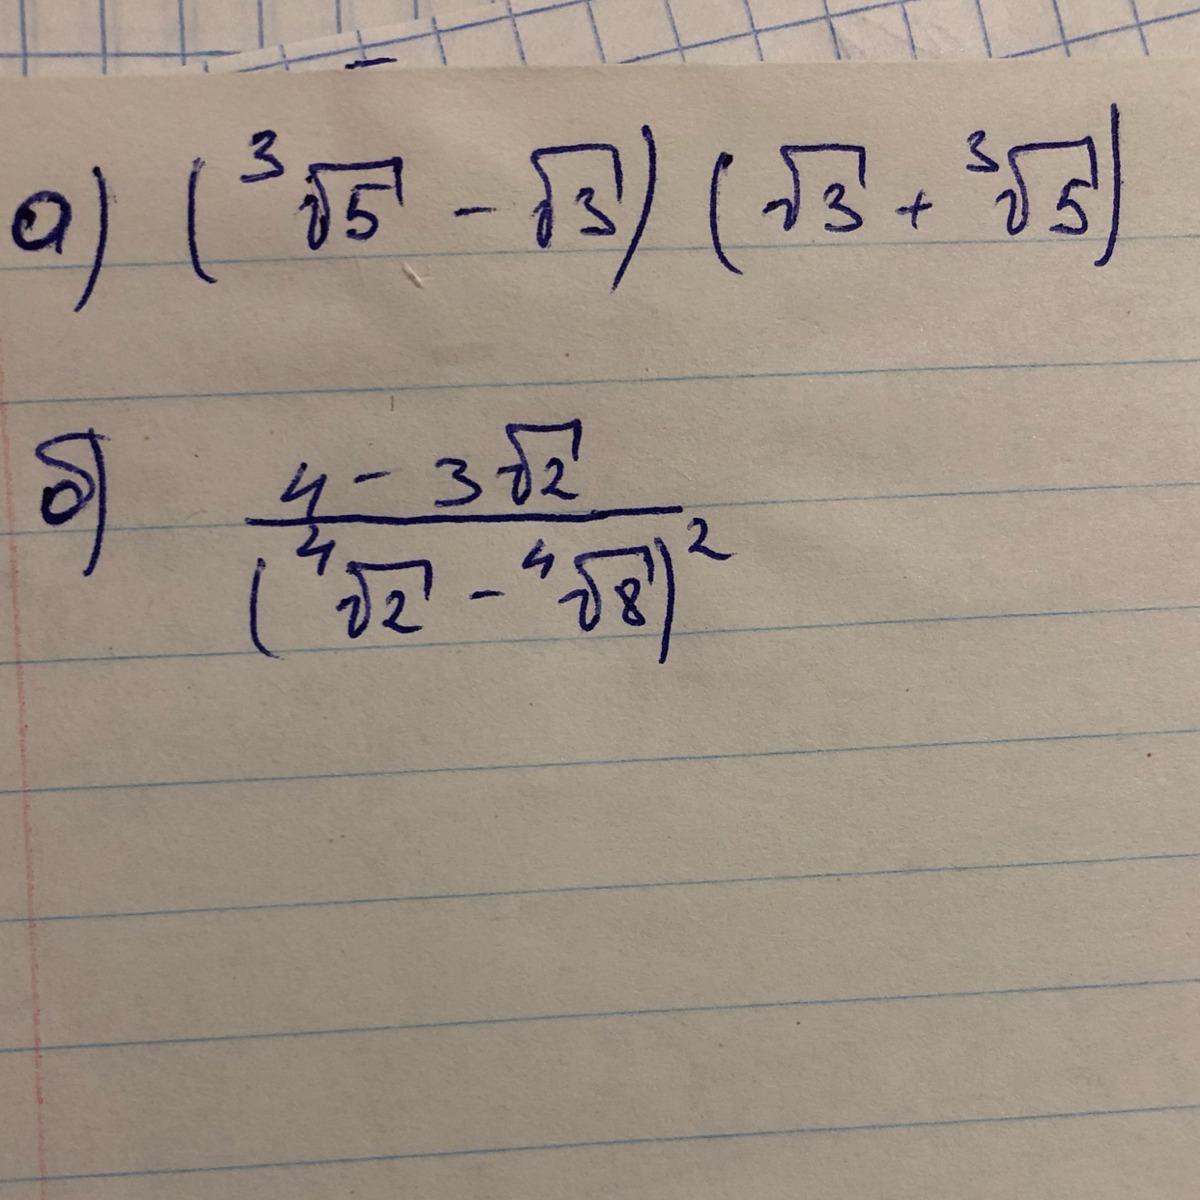 а) (³√5 - √3) (√3 + ³√5)
б) 4 - 3√2
(⁴√2 - ⁴√8)²